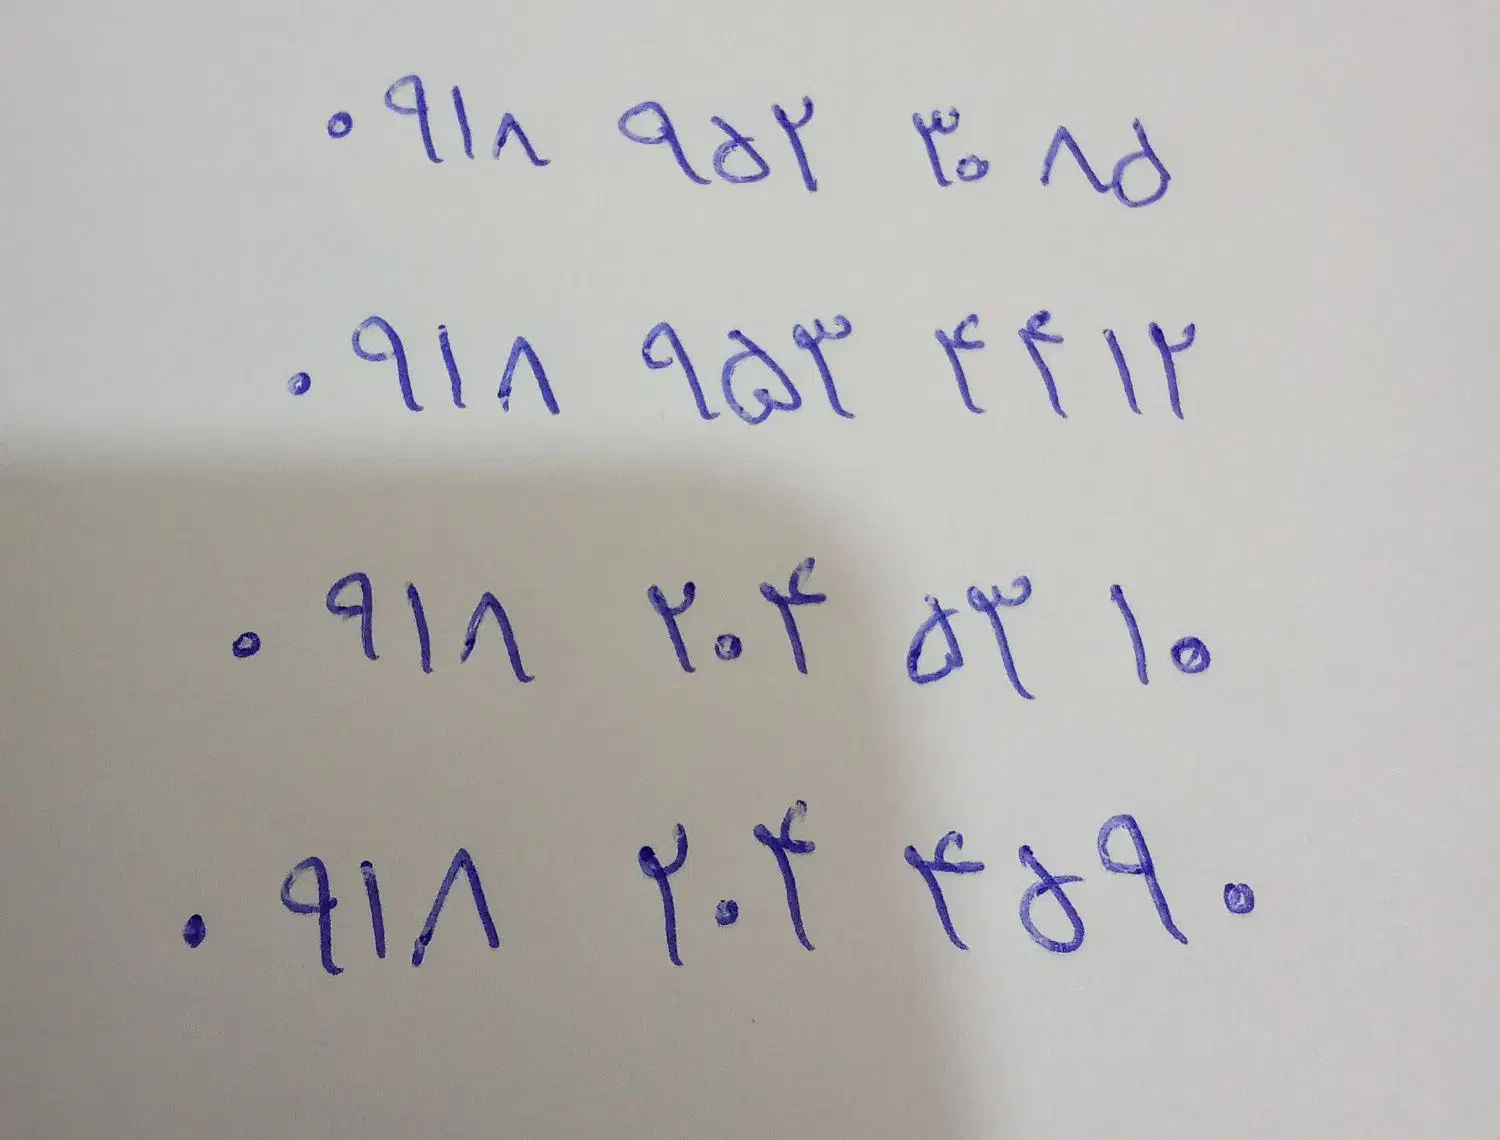 ۰۹۱۸ ۹۵۲ ۳۰ ۸۵
۰۹۱۸ ۹۵۳ ۴۴ ۱۲
۰۹۱۸ ۲۰۴ ۵۳ ۱۰
۰۹۱۸ ۲۰۴ ۴۵۹۰